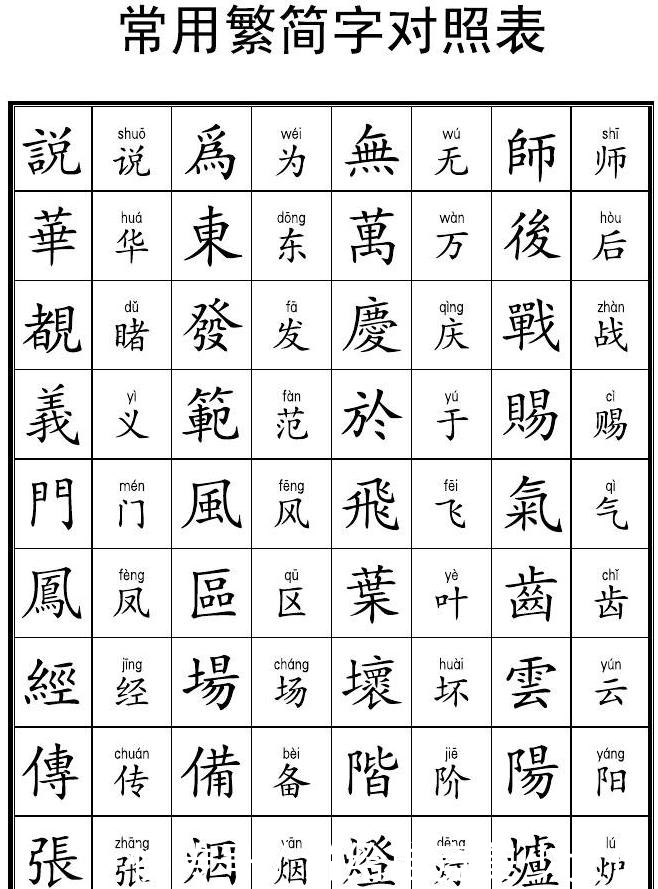 常用繁简字对照表
shuō wéi wú shī
説 说 爲 为 無 无 師 师
huá dōng wàn hòu
華 华 東 东 萬 万 後 后
dǔ fā qìng zhàn
覩 睹 發 发 慶 庆 戰 战
yì fàn yú cì
義 义 範 范 於 于 賜 赐
mén fēng fēi qì
門 门 風 风 飛 飞 氣 气
fèng qū yè chǐ
鳳 凤 區 区 葉 叶 齒 齿
jīng cháng huài yún
經 经 場 场 壞 坏 雲 云
chuán bèi jiē yáng
傳 传 備 备 階 阶 陽 阳
zhāng yān dēng lú
張 张 烟 烟 燈 爐 炉